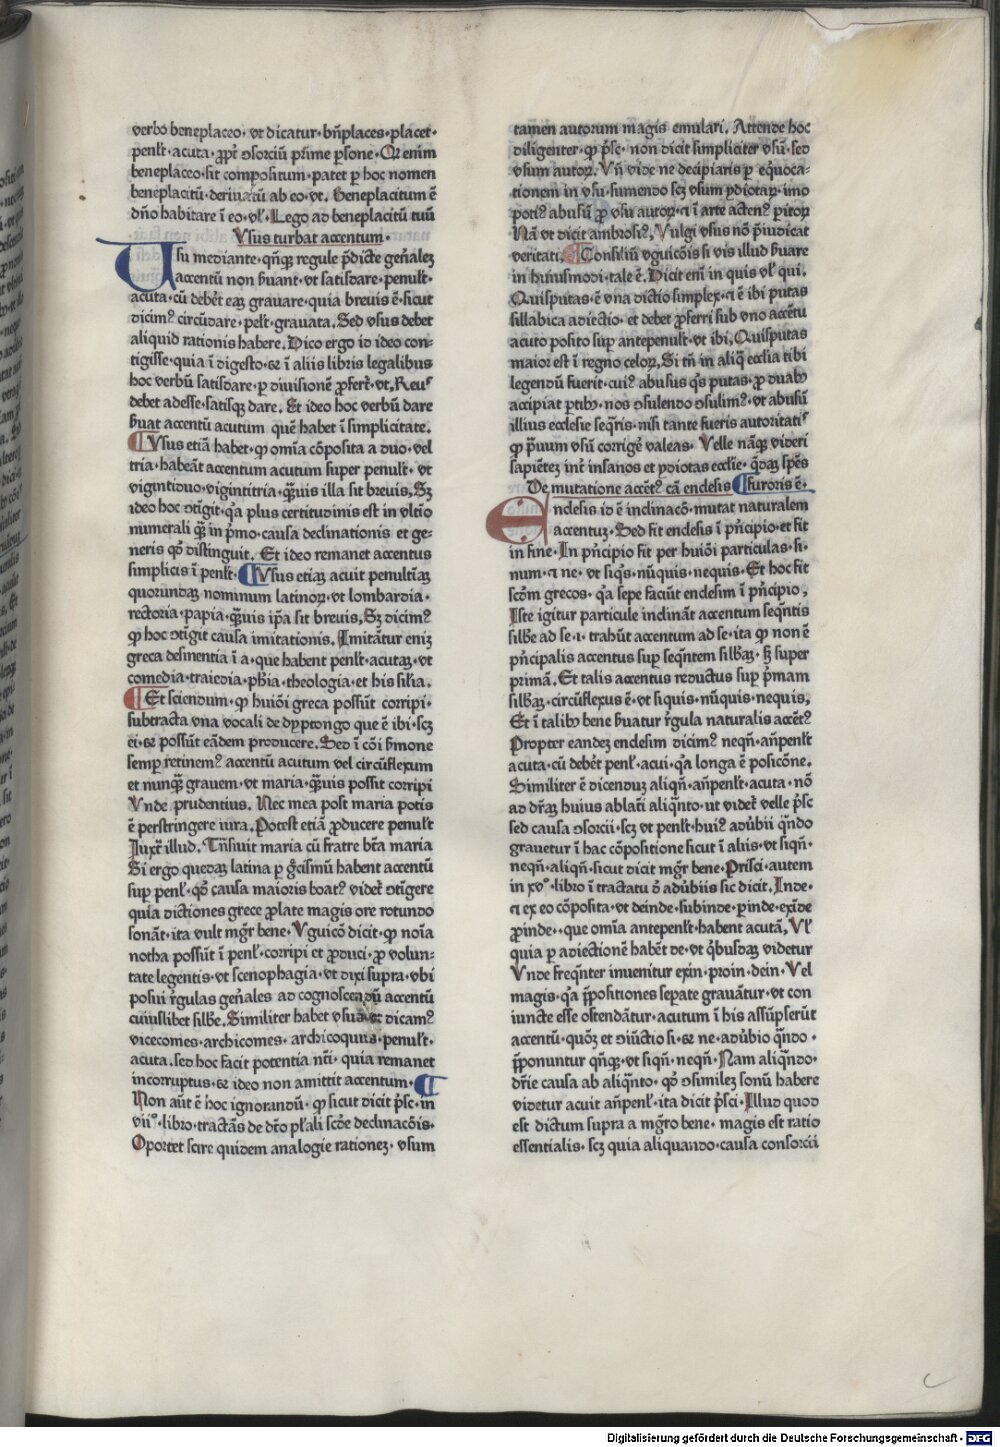 verbo beneplaceo· vt dicatur·bn̄places·placet·
penl̄t·acuta·ꝓpt̄ ꝯsorciū prīme ꝑsone·Qꝛ enim
beneplaceo·sit compositum·patet ꝑ hoc nomen
beneplacitū·deriuatū ab eo·vt·beneplacitum ē
dn̄o habitare ī eo·vl̓·Lego ad beneplacitū tuū
Vsus turbat accentum·
Usu mediante·qn̄qꝫ regule p̄dicte gen̄alez
accentū non ẜuant·vt satisdare·penul̄t·
acuta·cū debēt eaꝫ grauare·quia breuis ē·sicut
dicimꝰ circūdare·pēl̄t·grauata. Sed vsus debet
aliquid rationis habere. Dico ergo id ideo con⸗
tigisse·quia ī digesto·⁊ ī aliis libris legalibus
hoc verbū satisdare·ꝑ diuisionē ꝓfert̄·vt, Reuꝰ
debet adesse·satisqꝫ dare. Et ideo hoc verbū dare
ẜuat accentū acutum quē habet ī simplicitate.
¶Vsus etiā habet·ꝙ omīa cōposita a duo·vel
tria·habeāt accentum acutum super penul̄t·vt
vigintiduo·vigintitria·qͣꝫuis illa sit breuis, Sꝫ
ideo hoc ꝯtīgit·qͣ plus certitudinis est in vltīo
numerali qͣꝫ in pͥmo·causa declinationis et ge⸗
neris qd̓ distinguit. Et ideo remanet accentus
simplicis ī penl̄t·¶Vsus etiaꝫ acuit penultīaꝫ
quorundaꝫ nominum latinoꝝ·vt lombardia·
rectoria·papia·qͣꝫuis ip̄a sit breuis, Sꝫ dicimꝰ
ꝙ hoc ꝯtīgit causa imitationis. Imitātur eniꝫ
greca desinentia ī a·que habent penl̄t·acutaꝫ·vt
comedia·traiedia·ph̄ia·theologia·et his sil̄ia.
¶Et sciendum·ꝙ huiōi greca possūt corripi·
subtracta vna vocali de dyptongo que ē ibi·scꝫ
ei·⁊ possūt eādem producere. Sed ī cōi ẜmone
semꝑ retinemꝰ accentū acutum vel circūflexum
et nunqͣꝫ grauem·vt maria·qͣꝫuis possit corripi
Vnde prudentius. Nec mea post maria potis
ē perstringere iura. Potest etiā ꝓducere penul̄t
Juxͣ illud. Tn̄siuit maria cū fratre bt̄a maria
Si ergo quedaꝫ latina ꝑ gͥcismū habent accentū
suꝑ penl̓·qd̓ causa maioris boatꝰ videt̄ ꝯtīgere
quia dictiones grece ꝓlate magis ore rotundo
sonāt·ita vult mgr̄ bene·Vguicō dicit·ꝙ noīa
notha possūt ī penl̓·corripi et ꝓduci·ꝓ volun⸗
tate legentis·vt scenophagia·vt dixi supra·vbi
posui rḡulas gen̄ales ad cognoscendū accentū
cuiuslibet silb̄e. Similiter habet vsus vt dicamꝰ
vicecomes·archicomes·archicoquus·penul̄t·
acuta·sed hoc facit potentia nt̄i·quia remanet
incorruptus·⁊ ideo non amittit accentum·¶
Non aūt ē hoc ignorandū·ꝙ sicut dicit p̄sc·in
viiͦ·libro·tractās de dr̄to pl̄ali sc̄de declinacōis·
Oportet scire quidem analogie rationeꝫ·vsum
tamen autorum magis emulari. Attende hoc
diligenter·ꝙ p̄sc·non dicit simpliciter vsū·sed
vsum autoꝝ. Vn̄ vide ne decipiaris ꝑ eq̄uoca⸗
tionem in vsu·sumendo scꝫ vsum ydiotaꝝ·imo
potiꝰ abusū ꝓ vsu autoꝝ·⁊ ī arte actenꝰ ꝑitoꝝ
Nā vt dicit ambrosiꝰ, Vulgi vsus nō p̄iudicat
veritati.¶Consiliū vguicōis si vis illud ẜuare
in huiusmodi·tale ē. Dicit em̄ in quis vl̓ qui.
Quisputas·ē vna dictio simplex·⁊ ē ibi putas
sillabica adiectio·et debet ꝓferri sub vno accētu
acuto posito suꝑ antepenul̄t·vt ibi, Quisputas
maior est ī regno celoꝝ, Si tn̄ in aliq̄ eccl̄ia tibi
legendū fuerit·cuiꝰ abusus qͥs putas·ꝓ duabꝫ
accipiat ꝑtibꝫ·nos ꝯsulendo ꝯsulimꝰ·vt abusū
illius ecclesie seqͣris·nisi tante fueris autoritatꝭ
ꝙ p̄uum vsū corrigē valeas· Velle nāqꝫ videri
sapiētez int̄ insanos et ydiotas eccl̄ie·qd̄aꝫ spēs
De mutatione accētꝰ cā enclesis ¶furoris ē·
Enclesis id ē inclinacō·mutat naturalem
accentuꝫ·Sed fit enclesis ī pͥncipio·et fit
in fine·In pͥncipio fit per huiōi particulas·si·
num·⁊ ne·vt siqͥs·nūquis·nequis·Et hoc fit
scd̄m grecos·qͣ sepe faciūt enclesim ī pͥncipio,
Iste igitur particule inclināt accentum seqn̄tis
silb̄e ad se·i·trahūt accentum ad se·ita ꝙ non ē
pͥncipalis accentus suꝑ seqn̄tem silb̄aꝫ·sꝫ super
primā. Et talis accentus reductus suꝑ pͥmam
silb̄aꝫ·circūflexus ē·vt siquis·nūquis·nequis,
Et ī talibꝫ bene ẜuatur rḡula naturalis accētꝰ
Propter eandeꝫ enclesim dicimꝰ neqn̄·an̄penl̄t
acuta·cū debēt penl̓·acui·qͣ longa ē posicōne·
Similiter ē dicenduꝫ aliqn̄·an̄penl̄t·acuta·nō
ad dr̄aꝫ huius ablatī aliqͣnto·ut videt̄ velle p̄sc
sed causa ꝯsorcii·scꝫ vt penl̄t·huiꝰ adūbii qͣndo
grauetur ī hac cōpositione sicut ī aliis·vt siqn̄·
neqn̄·aliqn̄·sicut dicit mgr̄ bene·Prisci·autem
in xvͦ·libro ī tractatu ꝺ̄ adūbiis sic dicit. Inde·
⁊ ex eo cōposita·vt deinde·subinde·ꝑinde·exīde
ꝓinde··que omīa antepenl̄t·habent acutā, Vl̓
quia ꝑ adiectionē habēt de·vt qͥbusdaꝫ videtur
Vnde freqn̄ter inuenitur exin·proin·dein·Vel
magis·qͣ p̄positiones seꝑate grauātur·vt con
iuncte esse ostendātur·acutum ī his assūpserūt
accentū·quōꝫ et ꝯiūctio si·⁊ ne·adūbio qͣndo·
p̄ponuntur qn̄qꝫ·vt siqn̄·neqn̄·Nam aliqͣndo·
dr̄ie causa ab aliqͣnto·qd̓ ꝯsimileꝫ sonū habere
videtur acuit an̄penl̓·ita dicit p̄sci·Illud quod
est dictum supra a mgr̄o bene·magis est ratio
essentialis·scꝫ quia aliquando·causa consorcii
Digitalisierung gefördert durch die Deutsche Forschungsgemeinschaft · DFG